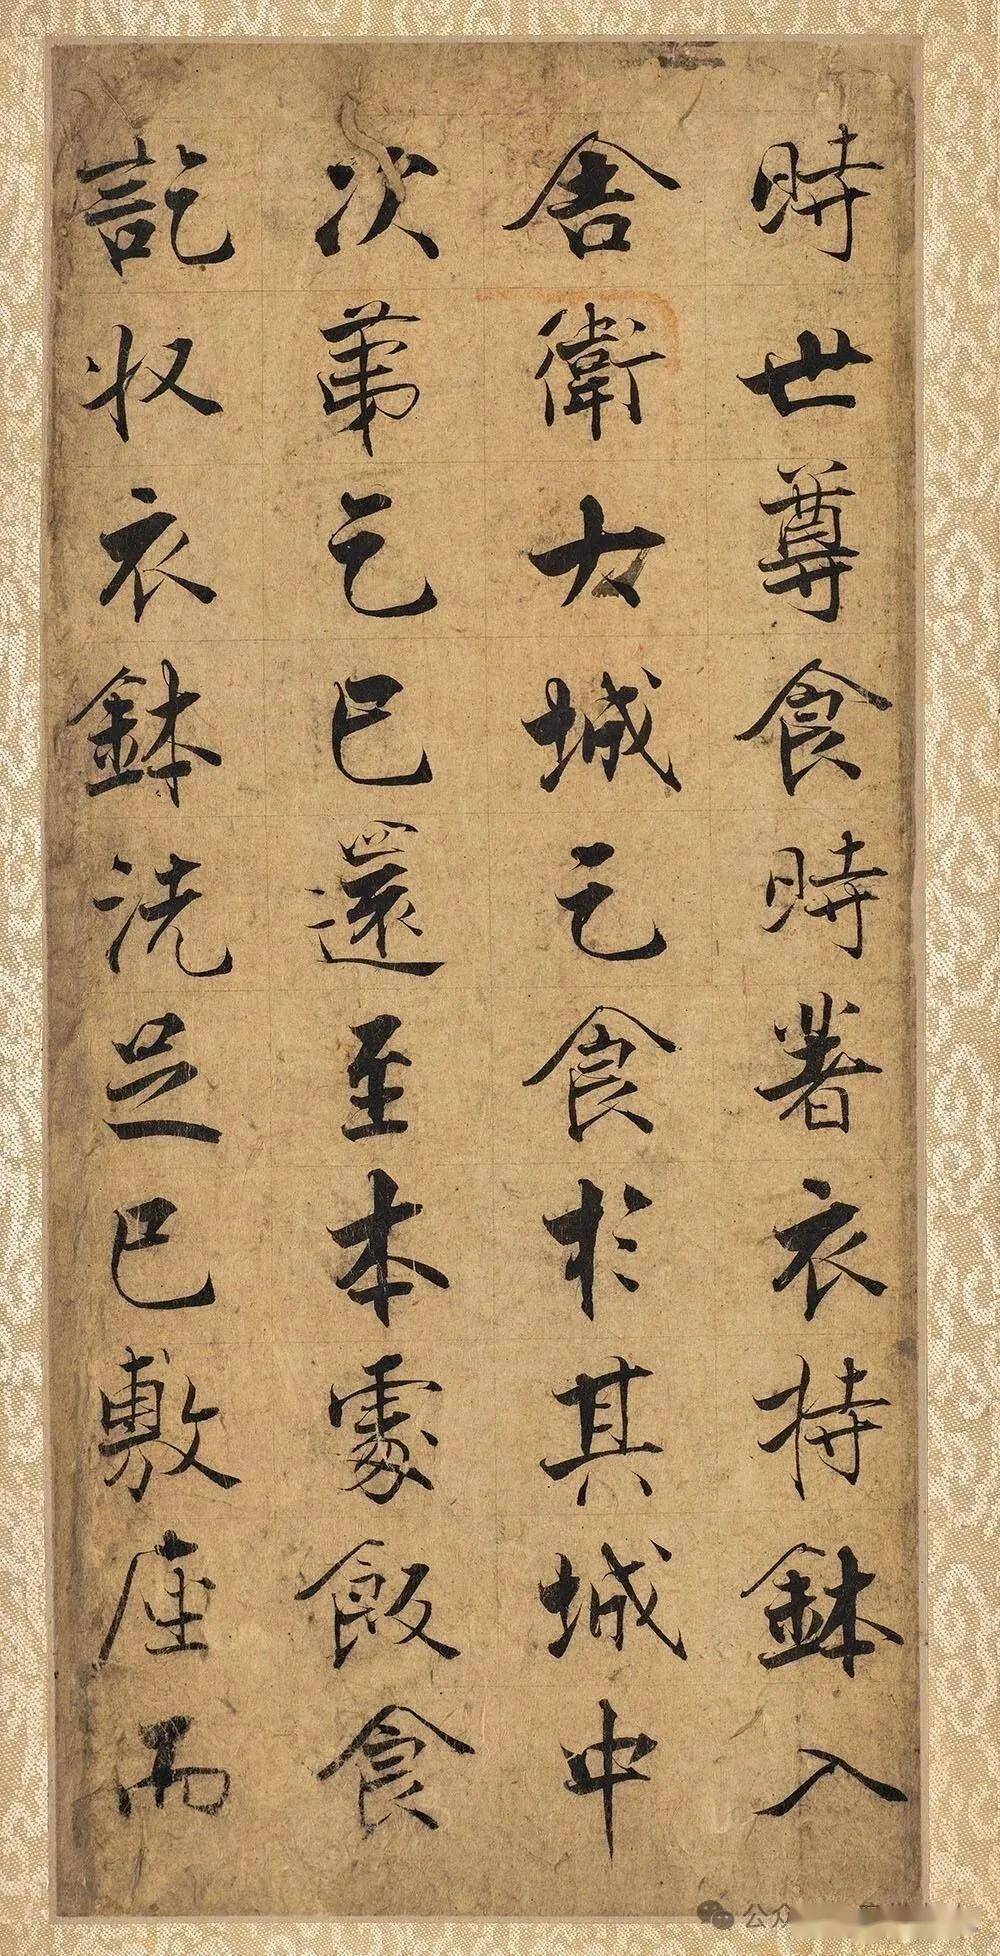 時世尊食時著衣持鉢入
舎衛大城乞食於其城中
次第乞已還至本處飯食
訖収衣鉢洗足已敷座而
公众